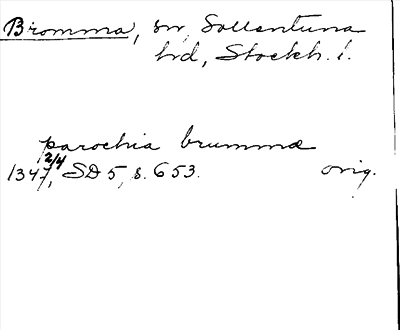 Bromma, sn, Sollentuna
hd, Stockh. l.
parochia brummæ
2/4
1347, SD 5, s. 653. orig.